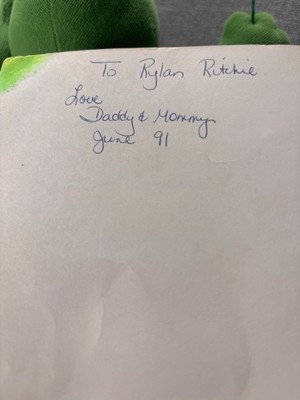 To Rylan Ritchie
Love
Daddy & Mommy
June 91